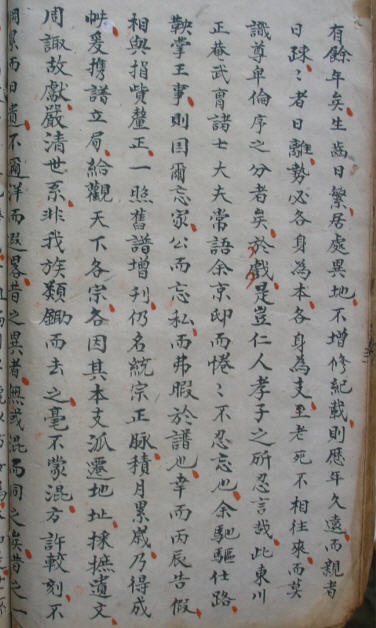 有餘年矣生齒日繁居處異地不增修紀載則歷年久遠而親者
日踈〻者日離勢必各身為本各身為支至老死不相往來而莫
識尊卑倫序之分者矣於戲是豈仁人孝子之所忍言哉此東川
正菴武胄諸士大夫常語余京邸而惓〻不忍忘也余馳驅仕路
鞅掌王事則国爾忘家公而忘私而弗暇於譜也幸而丙辰告假
相與捐貲釐正一照舊譜增刋仍名統宗正脉積月累歲乃得成
帙爰携譜立局給觀天下各宗各因其本支派遷地址採撫遺文
周諏故献嚴清世系非我族類鋤而去之毫不蒙混方許較刻不
而日遺不爾洋而叚畧昔之異者無或混為同之矣昔之一